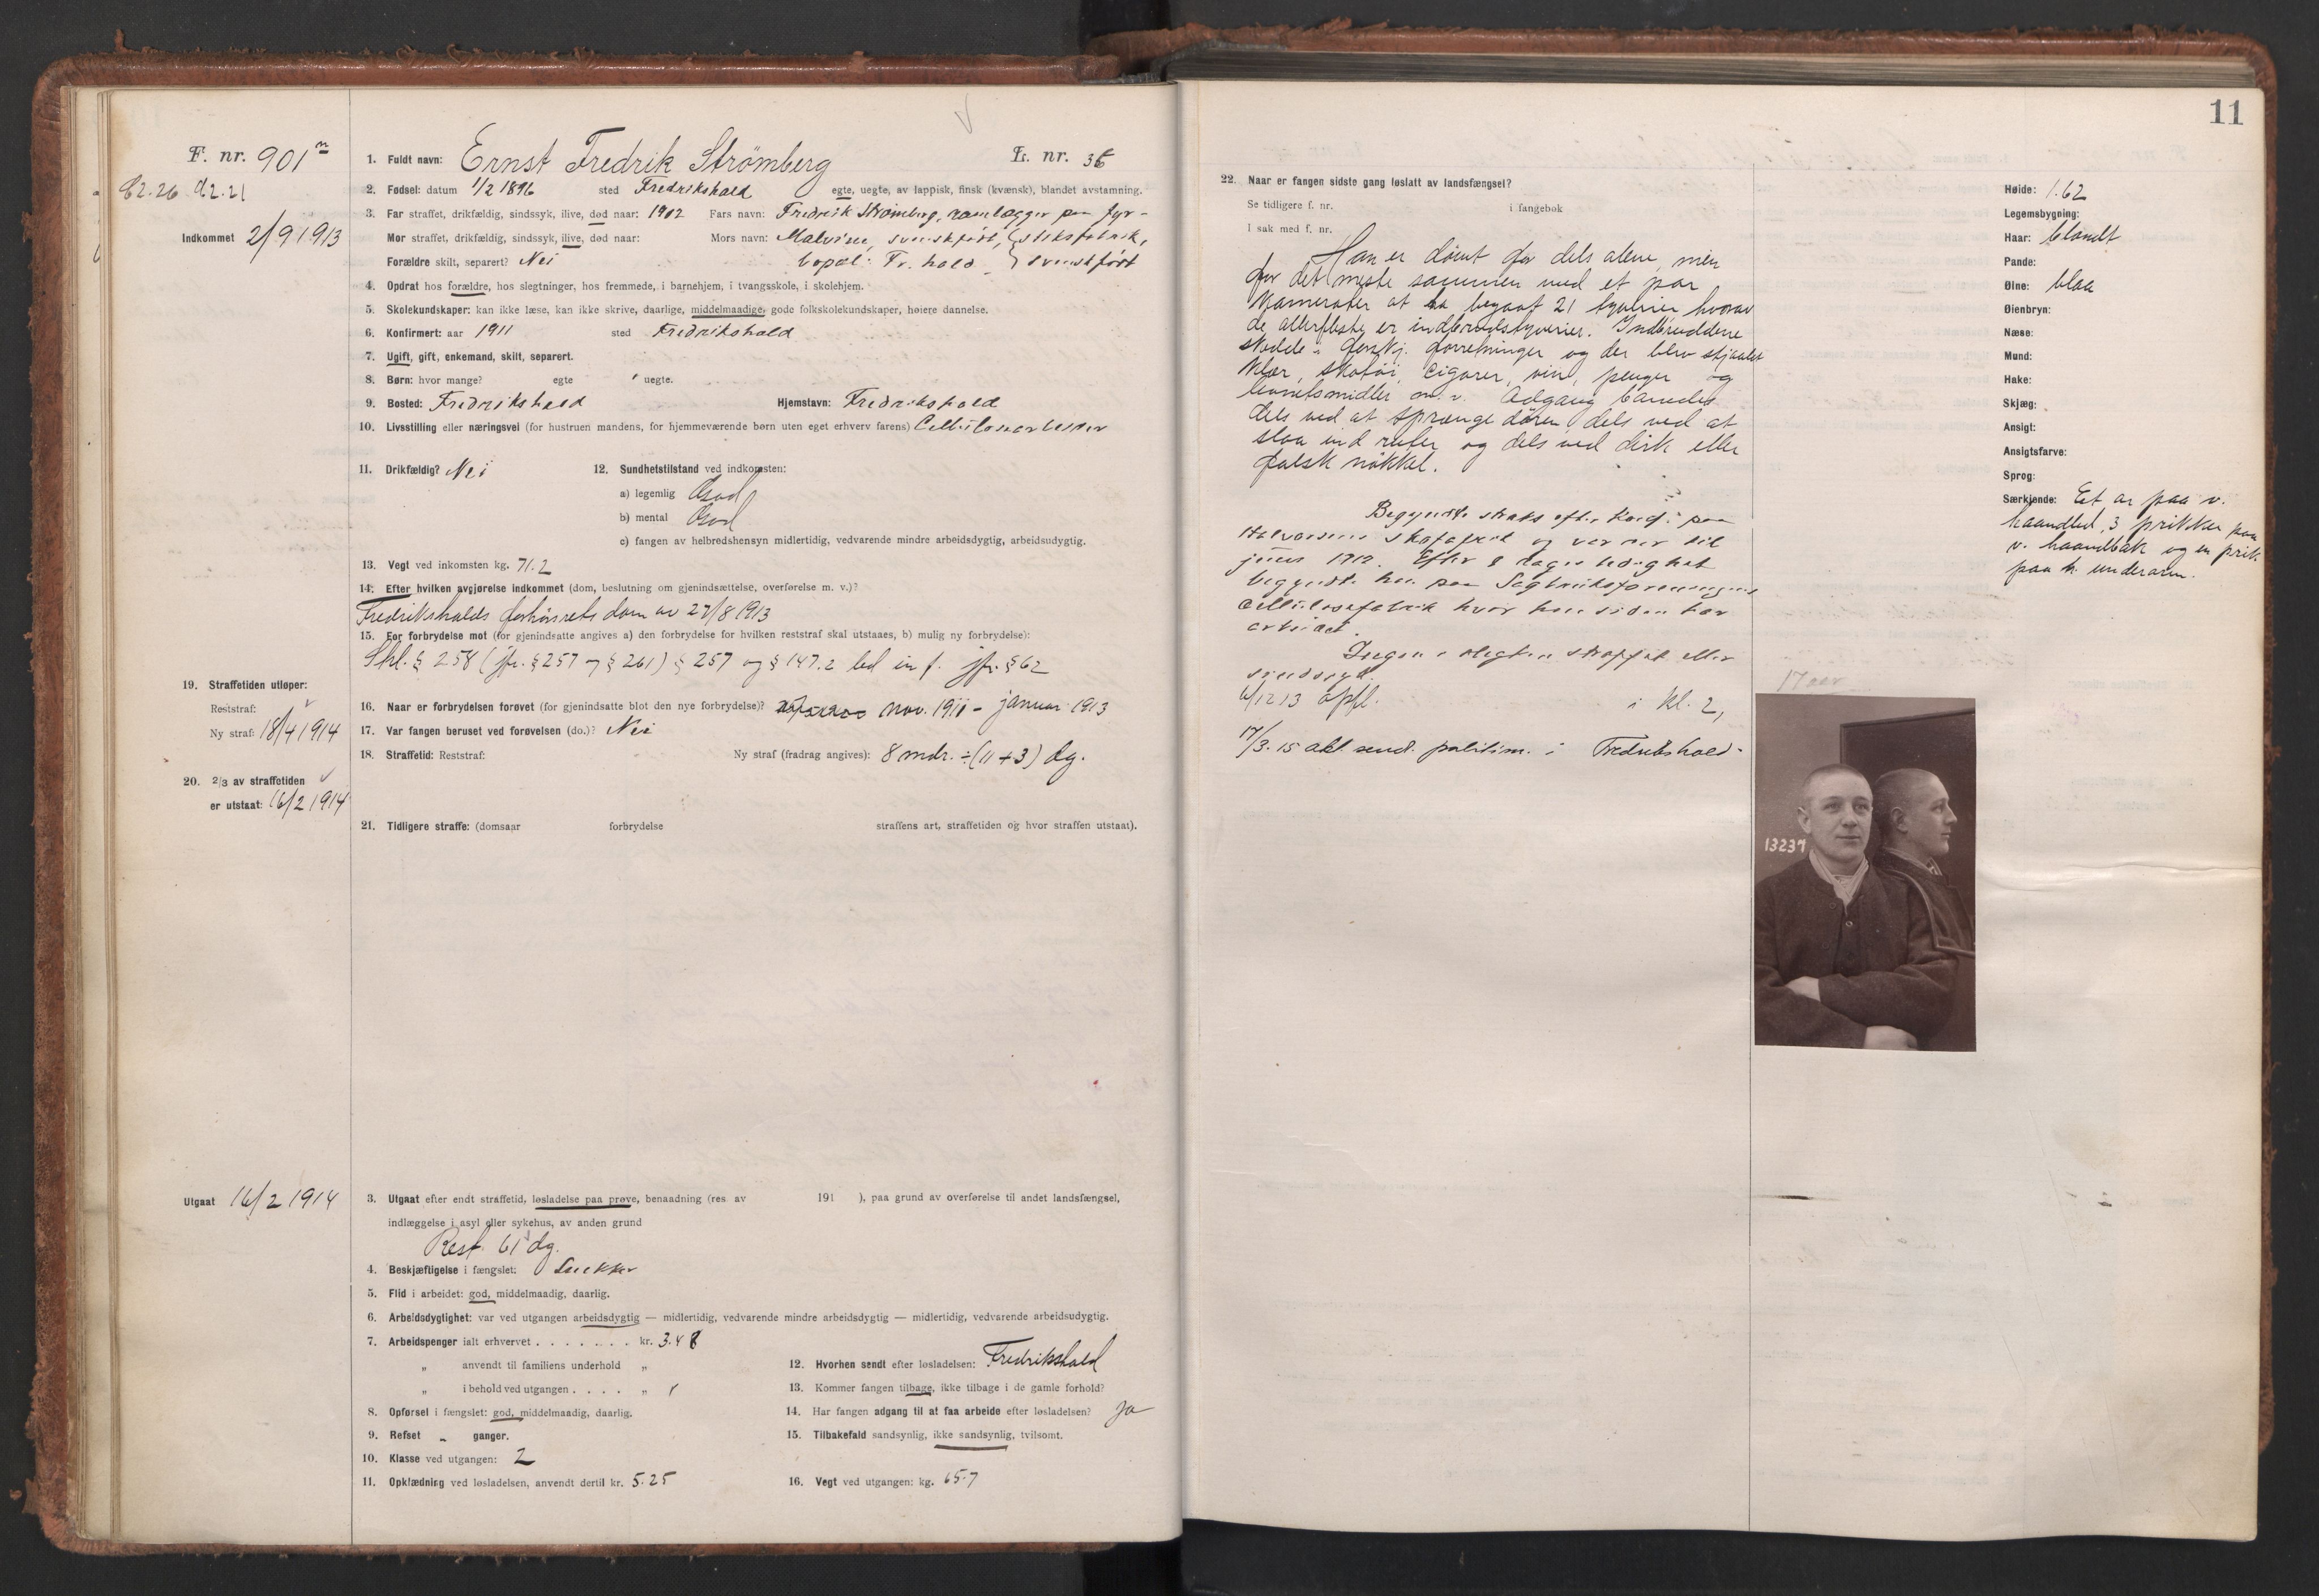 F. nr. 901
B2.26 d2.21
Indkommet 2/9 1913
19. Straffetiden utløper:
Reststraf:
Ny straf: 18/4 1914
20. 2/3 av straffetiden
er utstaat: 16/2 1914
Utgaat 16/2 1914
1. Fuldt navn: Ernst Fredrik Strömberg L. nr. 36
2. Fødsel: datum 1/2 1896 sted Fredrikshald egte, uegte, av lappisk, finsk (kvænsk), blandet avstamning.
3. Far straffet, drikfældig, sindssyk, ilive, død naar: 1902 Fars navn: Fredrik Strömberg, ramlægger paa fyr-
Mor straffet, drikfældig, sindssyk, ilive, død naar: Mors navn: Malvine, svenskfødt, stiksfabrik,
Forældre skilt, separert? Nei bopæl: Fr.hald svenskfødt
4. Opdrat hos forældre, hos slegtninger, hos fremmede, i barnehjem, i tvangsskole, i skolehjem.
5. Skolekundskaper: kan ikke læse, kan ikke skrive, daarlige, middelmaadige, gode folkskolekundskaper, høiere dannelse.
6. Konfirmert: aar 1911 sted Fredrikshald
7. Ugift, gift, enkemand, skilt, separert.
8. Børn: hvor mange? egte uegte.
9. Bosted: Fredrikshald Hjemstavn: Fredrikshald
10. Livsstilling eller næringsvei (for hustruen mandens, for hjemmeværende børn uten eget erhverv farens) Cellulosearbeider
11. Drikfældig? Nei 12. Sundhetstilstand ved indkomsten:
a) legemlig God
b) mental God
c) fangen av helbredshensyn midlertidig, vedvarende mindre arbeidsdygtig, arbeidsudygtig.
13. Vegt ved inkomsten kg. 71.2
14. Efter hvilken avgjørelse indkommet (dom, beslutning om gjenindsættelse, overførelse m. v.)?
Fredrikshalds forhørsrets dom av 27/8 1913
15. For forbrydelse mot (for gjenindsatte angives a) den forbrydelse for hvilken reststraf skal utstaaes, b) mulig ny forbrydelse):
Strl. § 258 (jfr. § 257 og § 261) § 257 og § 147.2 led in f. jfr. § 62
16. Naar er forbrydelsen forøvet (for gjenindsatte blot den nye forbrydelse)? nov. 1911 - januar 1913
17. Var fangen beruset ved forøvelsen (do.)? Nei
18. Straffetid: Reststraf: Ny straf (fradrag angives): 8 mdr. ÷ (11 + 3) dg.
21. Tidligere straffe: (domsaar forbrydelse straffens art, straffetiden og hvor straffen utstaat).
3. Utgaat efter endt straffetid, løsladelse paa prøve, benaadning (res. av 191 ), paa grund av overførelse til andet landsfængsel,
indlæggelse i asyl eller sykehus, av anden grund
Rest. 61 dg.
4. Beskjæftigelse i fængslet: Snekker
5. Flid i arbeidet: god, middelmaadig, daarlig.
6. Arbeidsdygtighet: var ved utgangen arbeidsdygtig — midlertidig, vedvarende mindre arbeidsdygtig — midlertidig, vedvarende arbeidsudygtig.
7. Arbeidspenger ialt erhvervet . . . . . . . kr. 3.48
„ anvendt til familiens underhold „
„ i behold ved utgangen . . . . „
8. Opførsel i fængslet: god, middelmaadig, daarlig.
9. Refset - ganger.
10. Klasse ved utgangen: 2
11. Opklædning ved løsladelsen, anvendt dertil kr. 5.25
12. Hvorhen sendt efter løsladelsen: Fredrikshald
13. Kommer fangen tilbage, ikke tilbage i de gamle forhold?
14. Har fangen adgang til at faa arbeide efter løsladelsen? Ja
15. Tilbakefald sandsynlig, ikke sandsynlig, tvilsomt.
16. Vegt ved utgangen: kg. 65.7
11
22. Naar er fangen sidste gang løslatt av landsfængsel?
Se tidligere f. nr. i fangebok
I sak med f. nr.
Han er dömt for dels alene, men
for det meste sammen med et par
kamerater at ha begaat 21 tyverier hvorav
de allerfleste er indbrudstyverier. Indbruddene
skedde i forskj. forretninger og der blev stjaalet
klær, skotöi, cigarer, vin, penger og
levnetsmidler m. v. Adgang banedes
dels ved at sprænge dören dels ved at
slaa ind ruter og dels ved dirk eller
falsk nökkel.
Begyndte straks efter konf. paa
Halvorsens skofabrik og var der til
juni 1912. Efter 8 dages ledighet
begyndte han paa Sagbruksforeningens
cellulosefabrik hvor han siden har
arbeidet.
Ingen i slegten straffet eller
sindssyk.
6/12 13 opfl. i kl. 2,
17/3.15 akt send. politim. i Fredrikshald.
17 aar
13237
Høide: 1.62
Legemsbygning:
Haar: blondt
Pande:
Øine: blaa
Øienbryn:
Næse:
Mund:
Hake:
Skjæg:
Ansigt:
Ansigtsfarve:
Sprog:
Særkjende: Et ar paa v.
haandled, 3 prikker paa
v. haandbak og en prik
paa h. underarm.